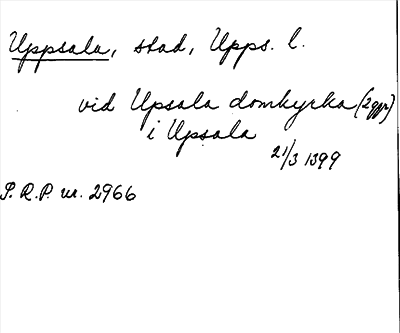 Uppsala, stad, Upps. l.
vid Upsala domkyrka (2ggr)
i Upsala
21/3 1399
S.R.P. nr. 2966